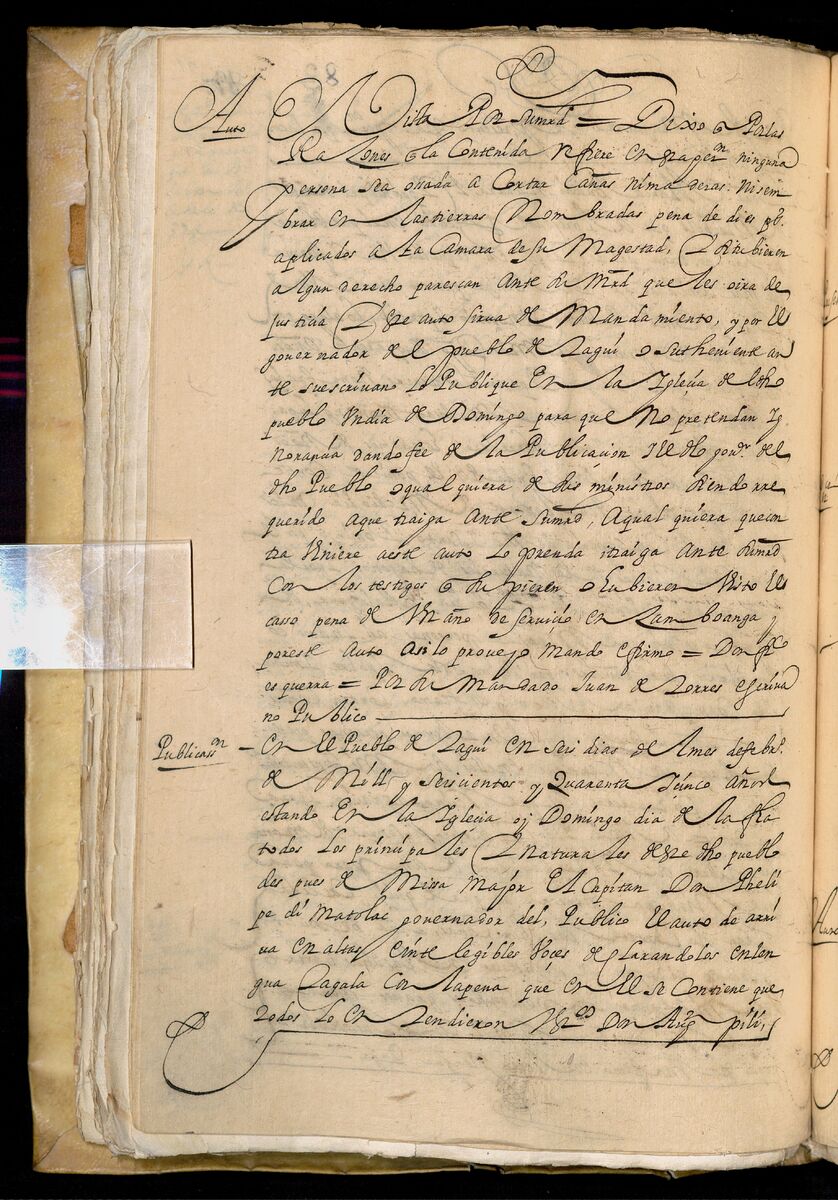 Auto Vista Por Sumrd = Dixo q Por las
Razones q la Contenida refiere en rason ninguna
persona sea ossada a Cortar Cañas nimaderas. Nisem
brar en las tierras Nombradas pena de dies ps.
aplicados a la Camara de su Magestad, Y situbieren
algun derecho parescan Ante su Mrd que les oira de
justicia Y este auto sirva de Mandamiento, y por El
governador del pueblo de Taguí o su theniente an
te suescrivano lo Publique En la Iglecia de dho
pueblo Un dia de Domingo para que No pretendan Ig
norancia dando fee de la Publicacion Y el dho govr. del
dho Pueblo o qual quiera de sus ministros siendo rre
querido aque traiga Ante Sumrd, Aqual quiera que con
tra Viniere aeste auto lo prenda i traiga Ante Sumrd
Con los testigos q supieren o Hubieren Visto El
casso pena de Un año de servicio en Zamboanga y
poreste Auto asilo proveyo mando e firmo = Don
esguerra = Por su Mandado Juan de Torres escriva
no Publico
Publicassn – En El Pueblo de Taguí en seis dias del mes de febro.
de Mill y seiscientos y Quarenta i cinco años
estando En la Iglecia oy Domingo dia de la fha
todos los principales Y naturales deste dho pueblo
des pues de Missa mayor El Capitan Don Pheli
pe di Matolac governador del, Publico El auto de arri
va en altas e inte legibles Voces declarandolos en len
gua Tagala Con la pena que en El se Contiene que
todos lo entendieron tgos Don Aug pili,